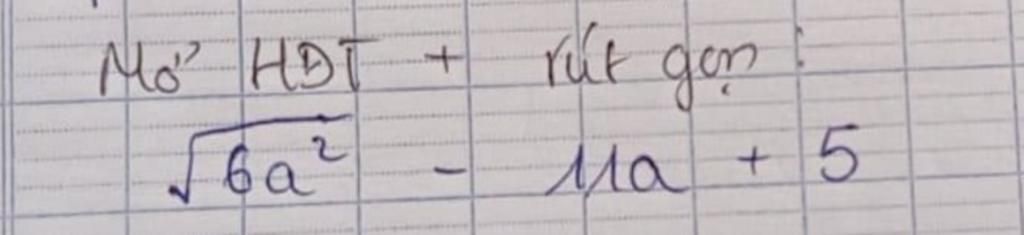 Mở HĐT + rút gọn :
√6a² - 11a + 5